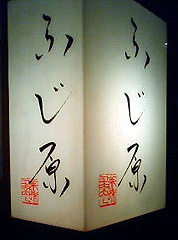 ふじ原
ふじ原